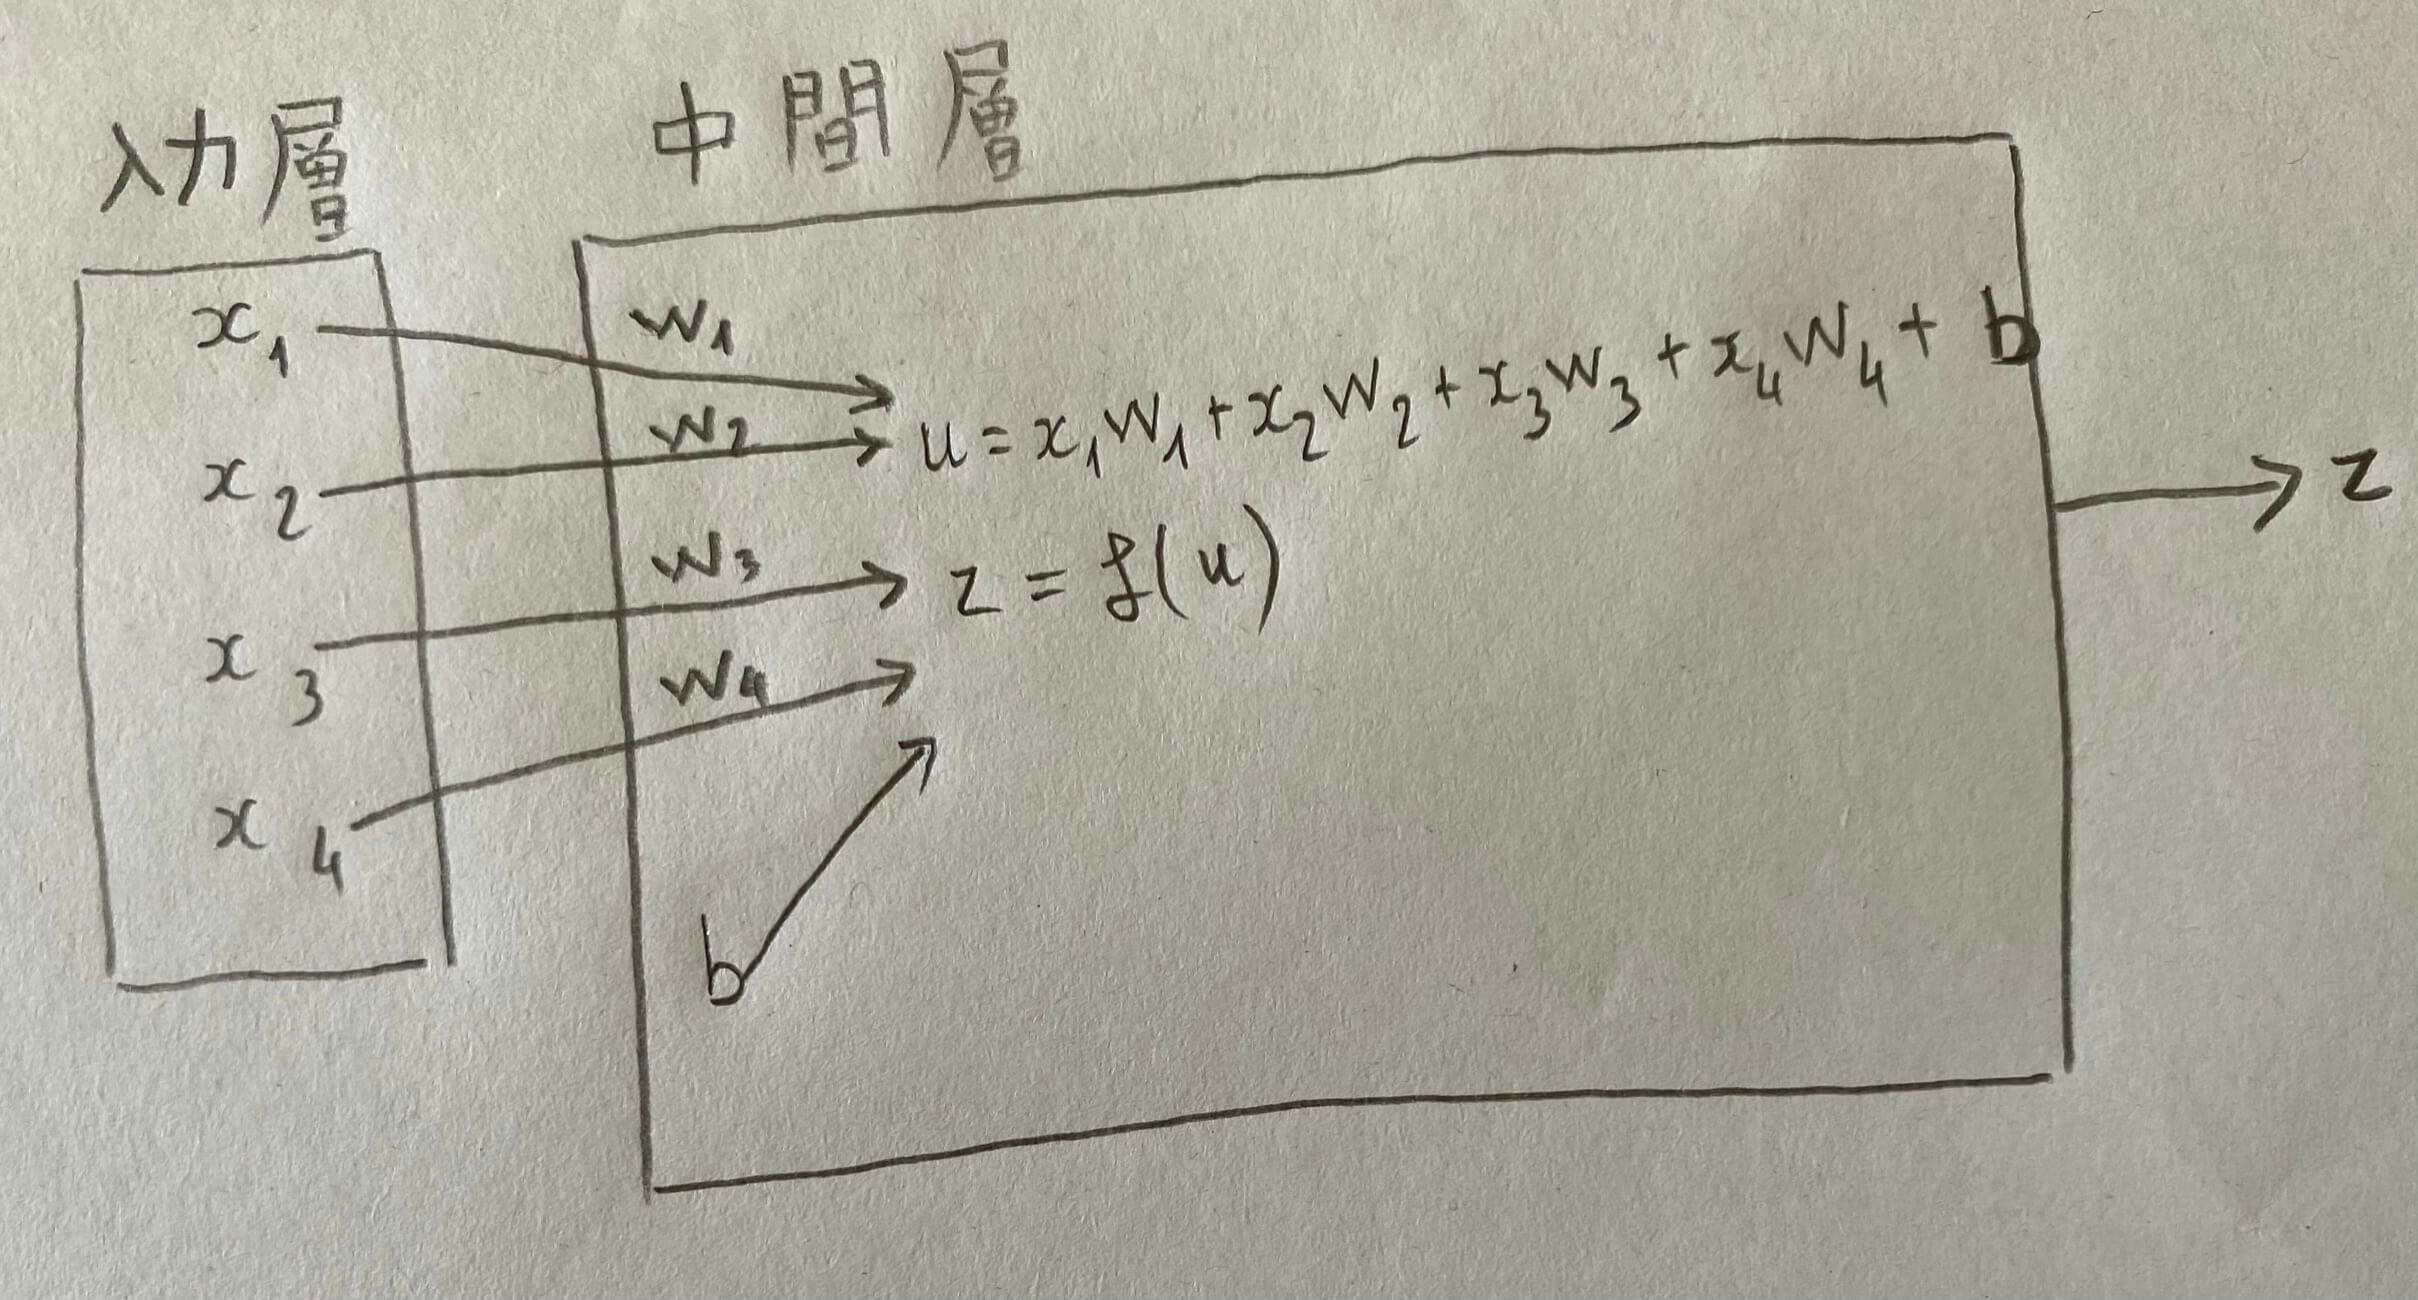 入力層
中間層
x₁
x₂
x₃
x₄
w₁
w₂
w₃
w₄
b
u = x₁w₁ + x₂w₂ + x₃w₃ + x₄w₄ + b
z = f(u)
z